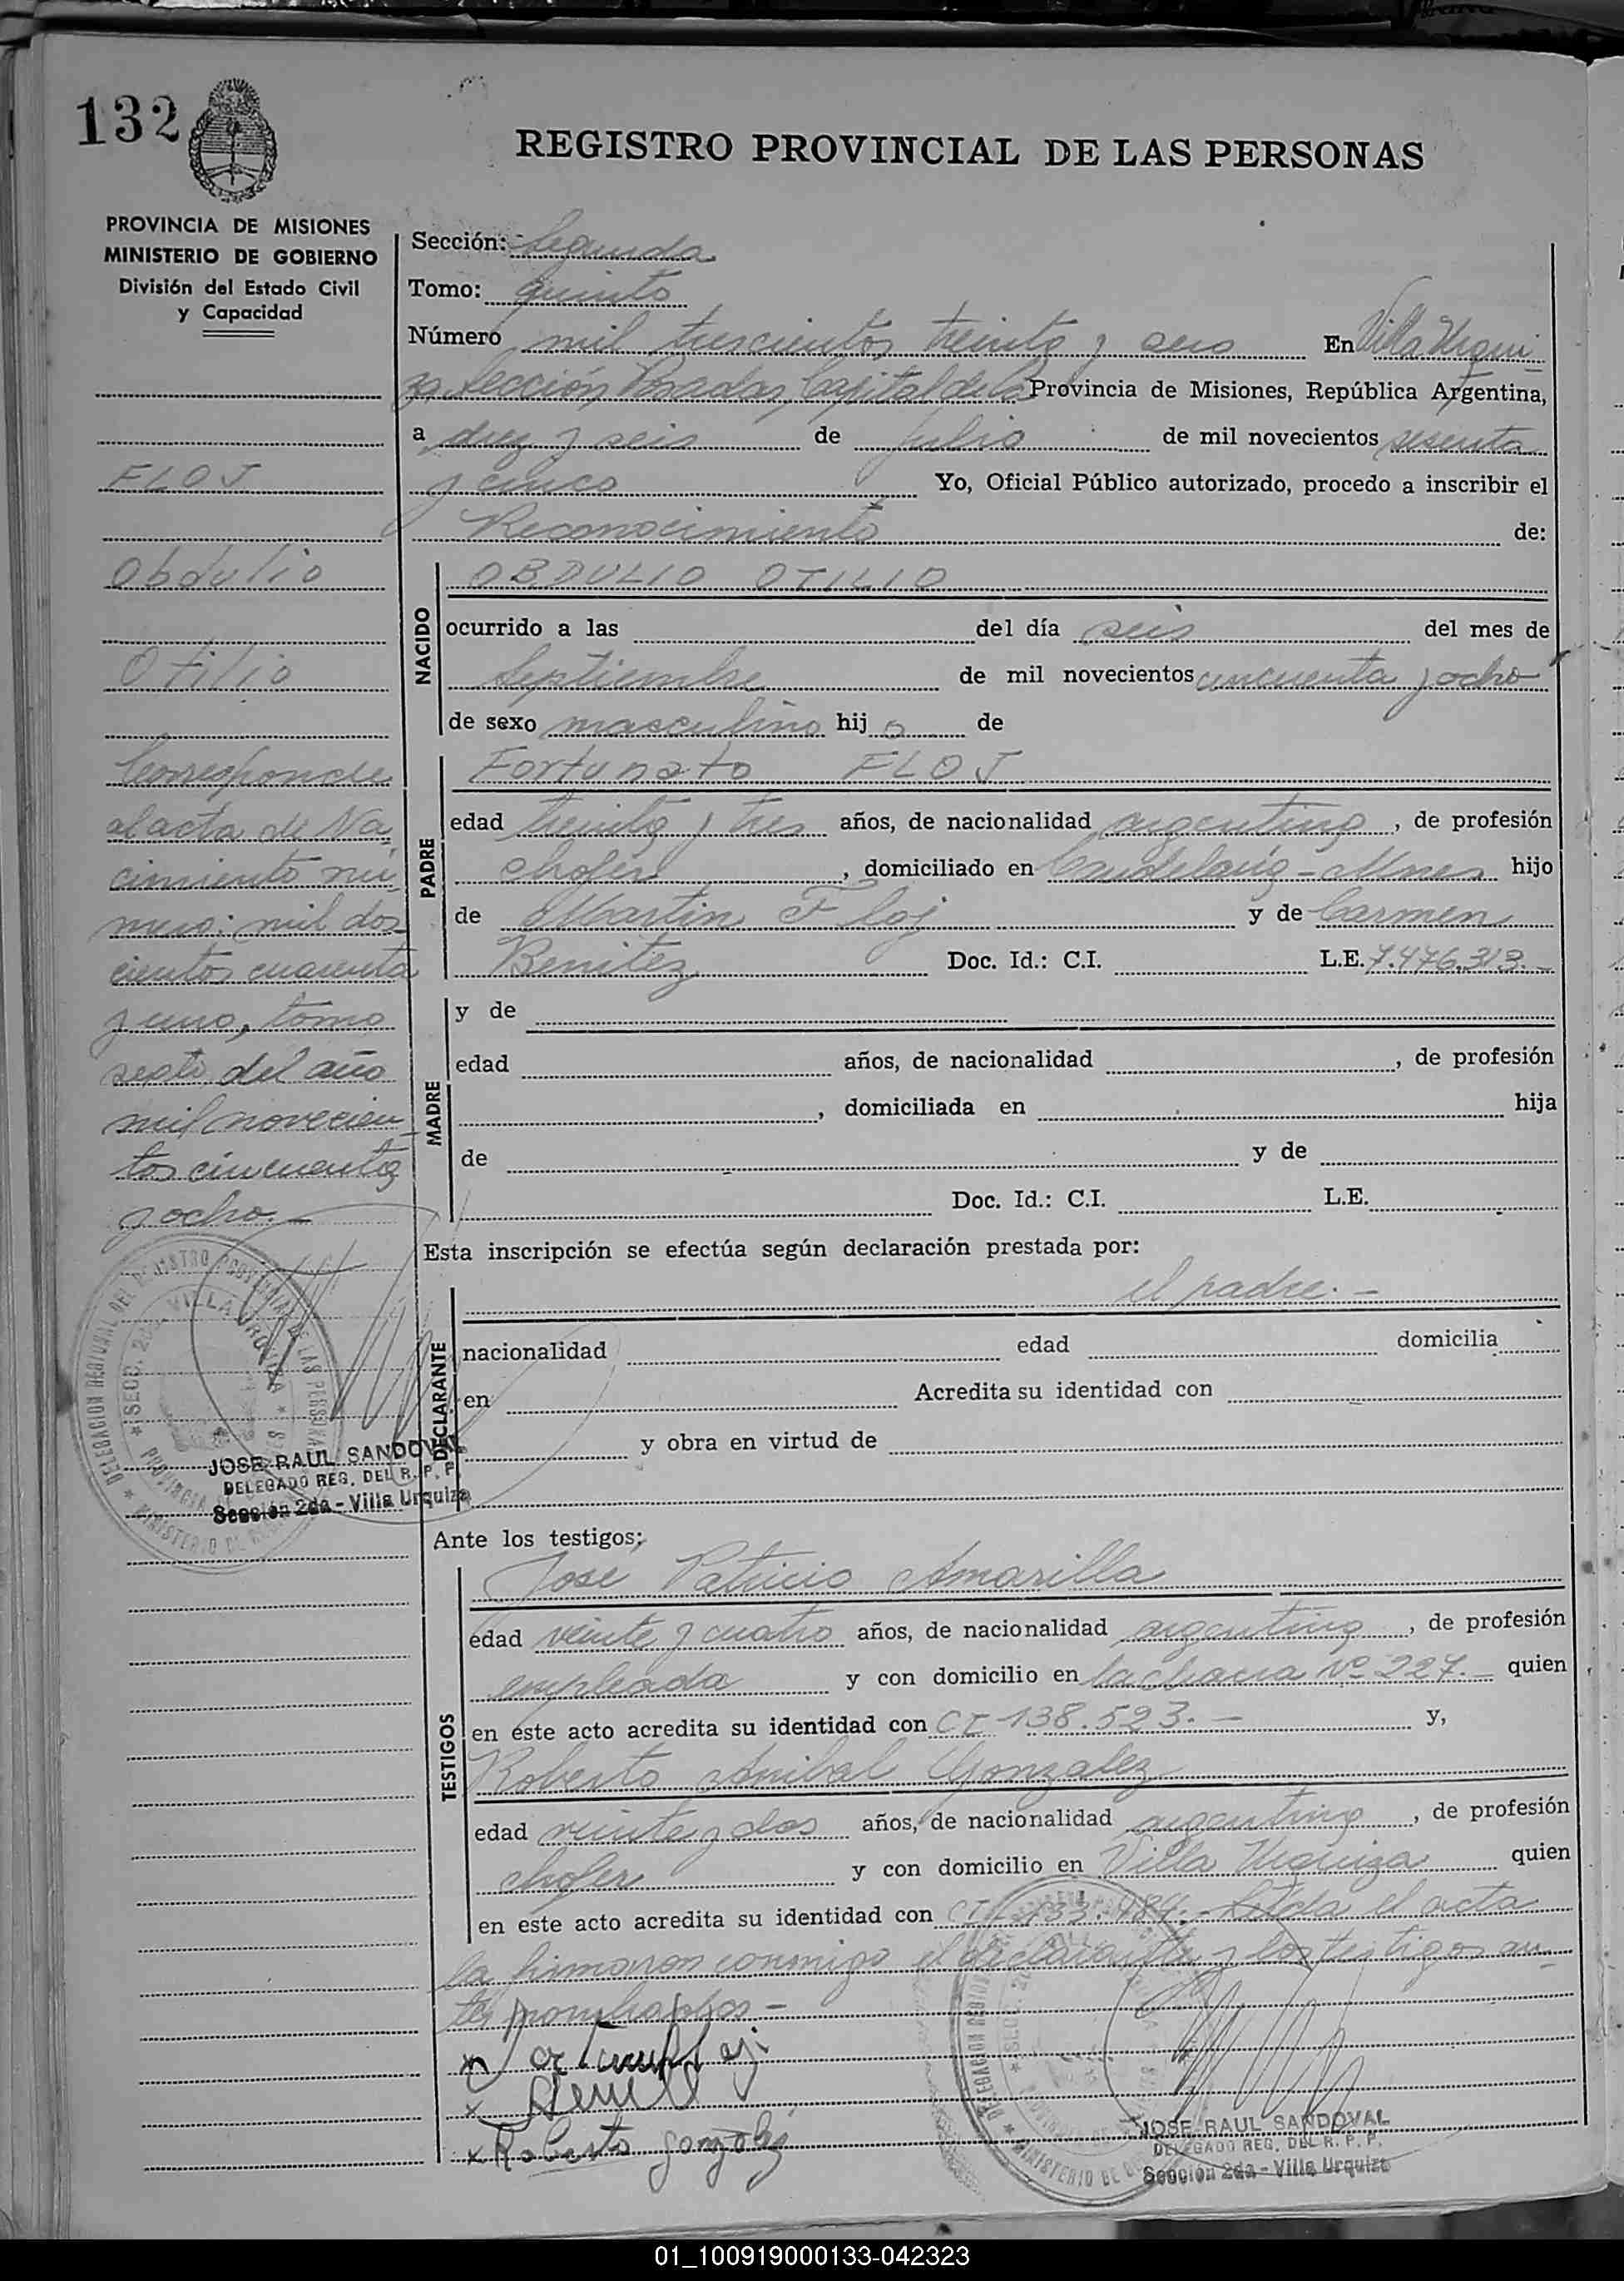 132
REGISTRO PROVINCIAL DE LAS PERSONAS
PROVINCIA DE MISIONES
MINISTERIO DE GOBIERNO
División del Estado Civil
y Capacidad
FLOJ
Obdulio
Otilio
Corresponde
al acta de Na
cimiento nú
mero: mil dos
cientos cuarenta
y uno, tomo
sexto del año
mil novecien
tos cincuenta
y ocho.-
JOSE RAUL SANDOVAL
DELEGADO REG. DEL R. P. P.
Sección 2da - Villa Urquiza
Sección: Segunda
Tomo: quinto
Número mil trescientos treinta y seis En Villa Urqui
za Sección, Posadas, Capital de la Provincia de Misiones, República Argentina,
a diez y seis de Julio de mil novecientos sesenta
y cinco Yo, Oficial Público autorizado, procedo a inscribir el
Reconocimiento de:
NACIDO
OBDULIO OTILIO
ocurrido a las del día seis del mes de
Septiembre de mil novecientos cincuenta y ocho
de sexo masculino hij o de
PADRE
Fortunato FLOJ
edad treinta y tres años, de nacionalidad argentino, de profesión
chofer, domiciliado en Candelaria - Mnes hijo
de Martin Floj y de Carmen
Benitez Doc. Id.: C.I. L.E. 7.476.313.-
MADRE
y de
edad años, de nacionalidad , de profesión
, domiciliada en hija
de y de
Doc. Id.: C.I. L.E.
Esta inscripción se efectúa según declaración prestada por:
DECLARANTE
el padre.-
nacionalidad edad domicilia
en Acredita su identidad con
y obra en virtud de
Ante los testigos:
TESTIGOS
José Patricio Amarilla
edad veinte y cuatro años, de nacionalidad argentino, de profesión
empleado y con domicilio en la chacra Nº 227.- quien
en este acto acredita su identidad con CI 138.523.- y,
Roberto Anibal Gonzalez
edad veinte y dos años, de nacionalidad argentino, de profesión
chofer y con domicilio en Villa Urquiza quien
en este acto acredita su identidad con CI 133.484.- Leída el acta
la firmaron conmigo el declarante y los testigos an
tes nombrados.-
Roberto Gonzalez
JOSE RAUL SANDOVAL
DELEGADO REG. DEL R. P. P.
Sección 2da - Villa Urquiza
01_100919000133-042323